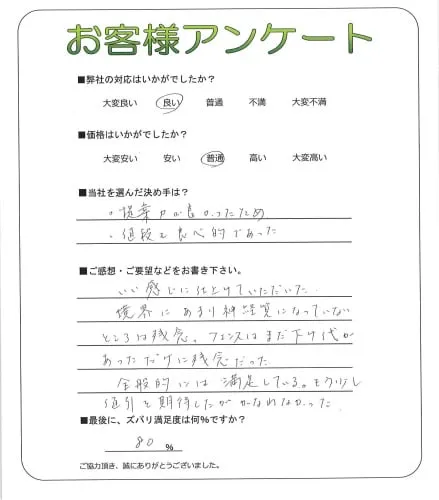 お客様アンケート
■弊社の対応はいかがでしたか?
大変良い 良い 普通 不満 大変不満
■価格はいかがでしたか?
大変安い 安い 普通 高い 大変高い
■当社を選んだ決め手は?
・提案力が良かったため
・値段も良心的であった
■ご感想・ご要望などをお書き下さい。
いい感じに仕上げていただいた。
境界にあまり神経質になっていない
ところは残念。フェンスはまだ下げ代が
あっただけに残念だった
全般的には満足している。もう少し
値引を期待したがかなわなかった。
■最後に、ズバリ満足度は何%ですか?
80 %
ご協力頂き、誠にありがとうございました。